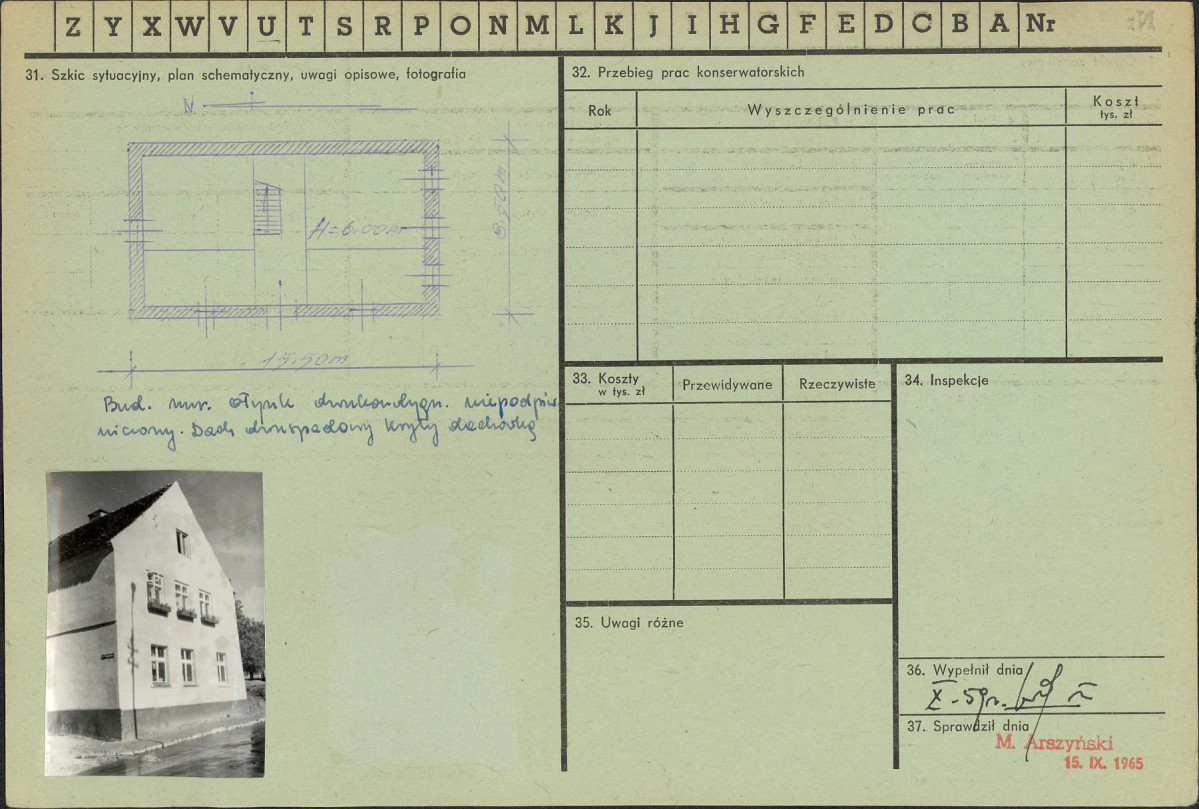 Z Y X W V U T S R P O N M L K J I H G F E D C B A Nr
31. Szkic sytuacyjny, plan schematyczny, uwagi opisowe, fotografia
N
H=6.00m
15.50m
Bud. mur. otynk dwukondygn. niepodpiw
niczony. Dach dwuspadowy kryty dachówką
32. Przebieg prac konserwatorskich
Rok
Wyszczególnienie prac
Koszt
tys. zł
33. Koszty
w tys. zł
Przewidywane
Rzeczywiste
34. Inspekcje
35. Uwagi różne
36. Wypełnił dnia
X - 59r.
37. Sprawdził dnia
M. Arszyński
15. IX. 1965